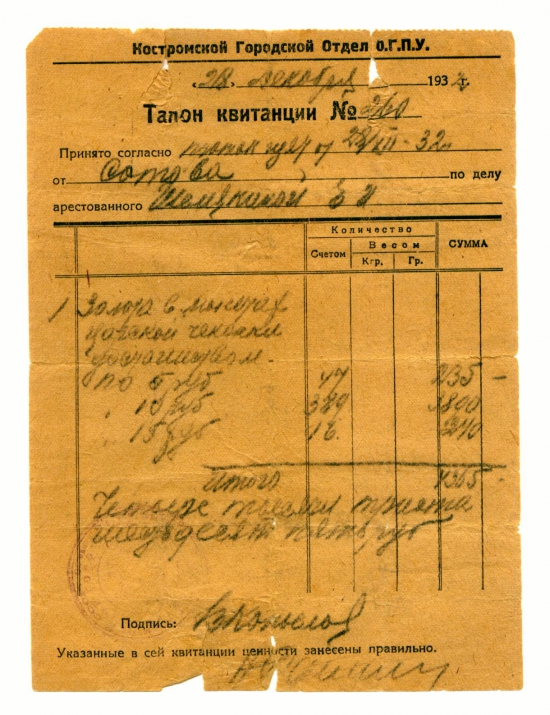 Костромской Городской Отдел О.Г.П.У.
28 декабря 193 г.
Талон квитанции №
Принято согласно от 32
от Сотова по делу
арестованного Шемякиной
Количество
Счетом Весом СУММА
Кгр. Гр.
1 Золота в монетах
царской чеканки
достоинством
по 5 руб 47 235 —
" 10 руб 389 3890
" 15 руб 16. 240
Итого 4365
Четыре тысячи триста
шестьдесят пять руб
Подпись:
Указанные в сей квитанции ценности занесены правильно.